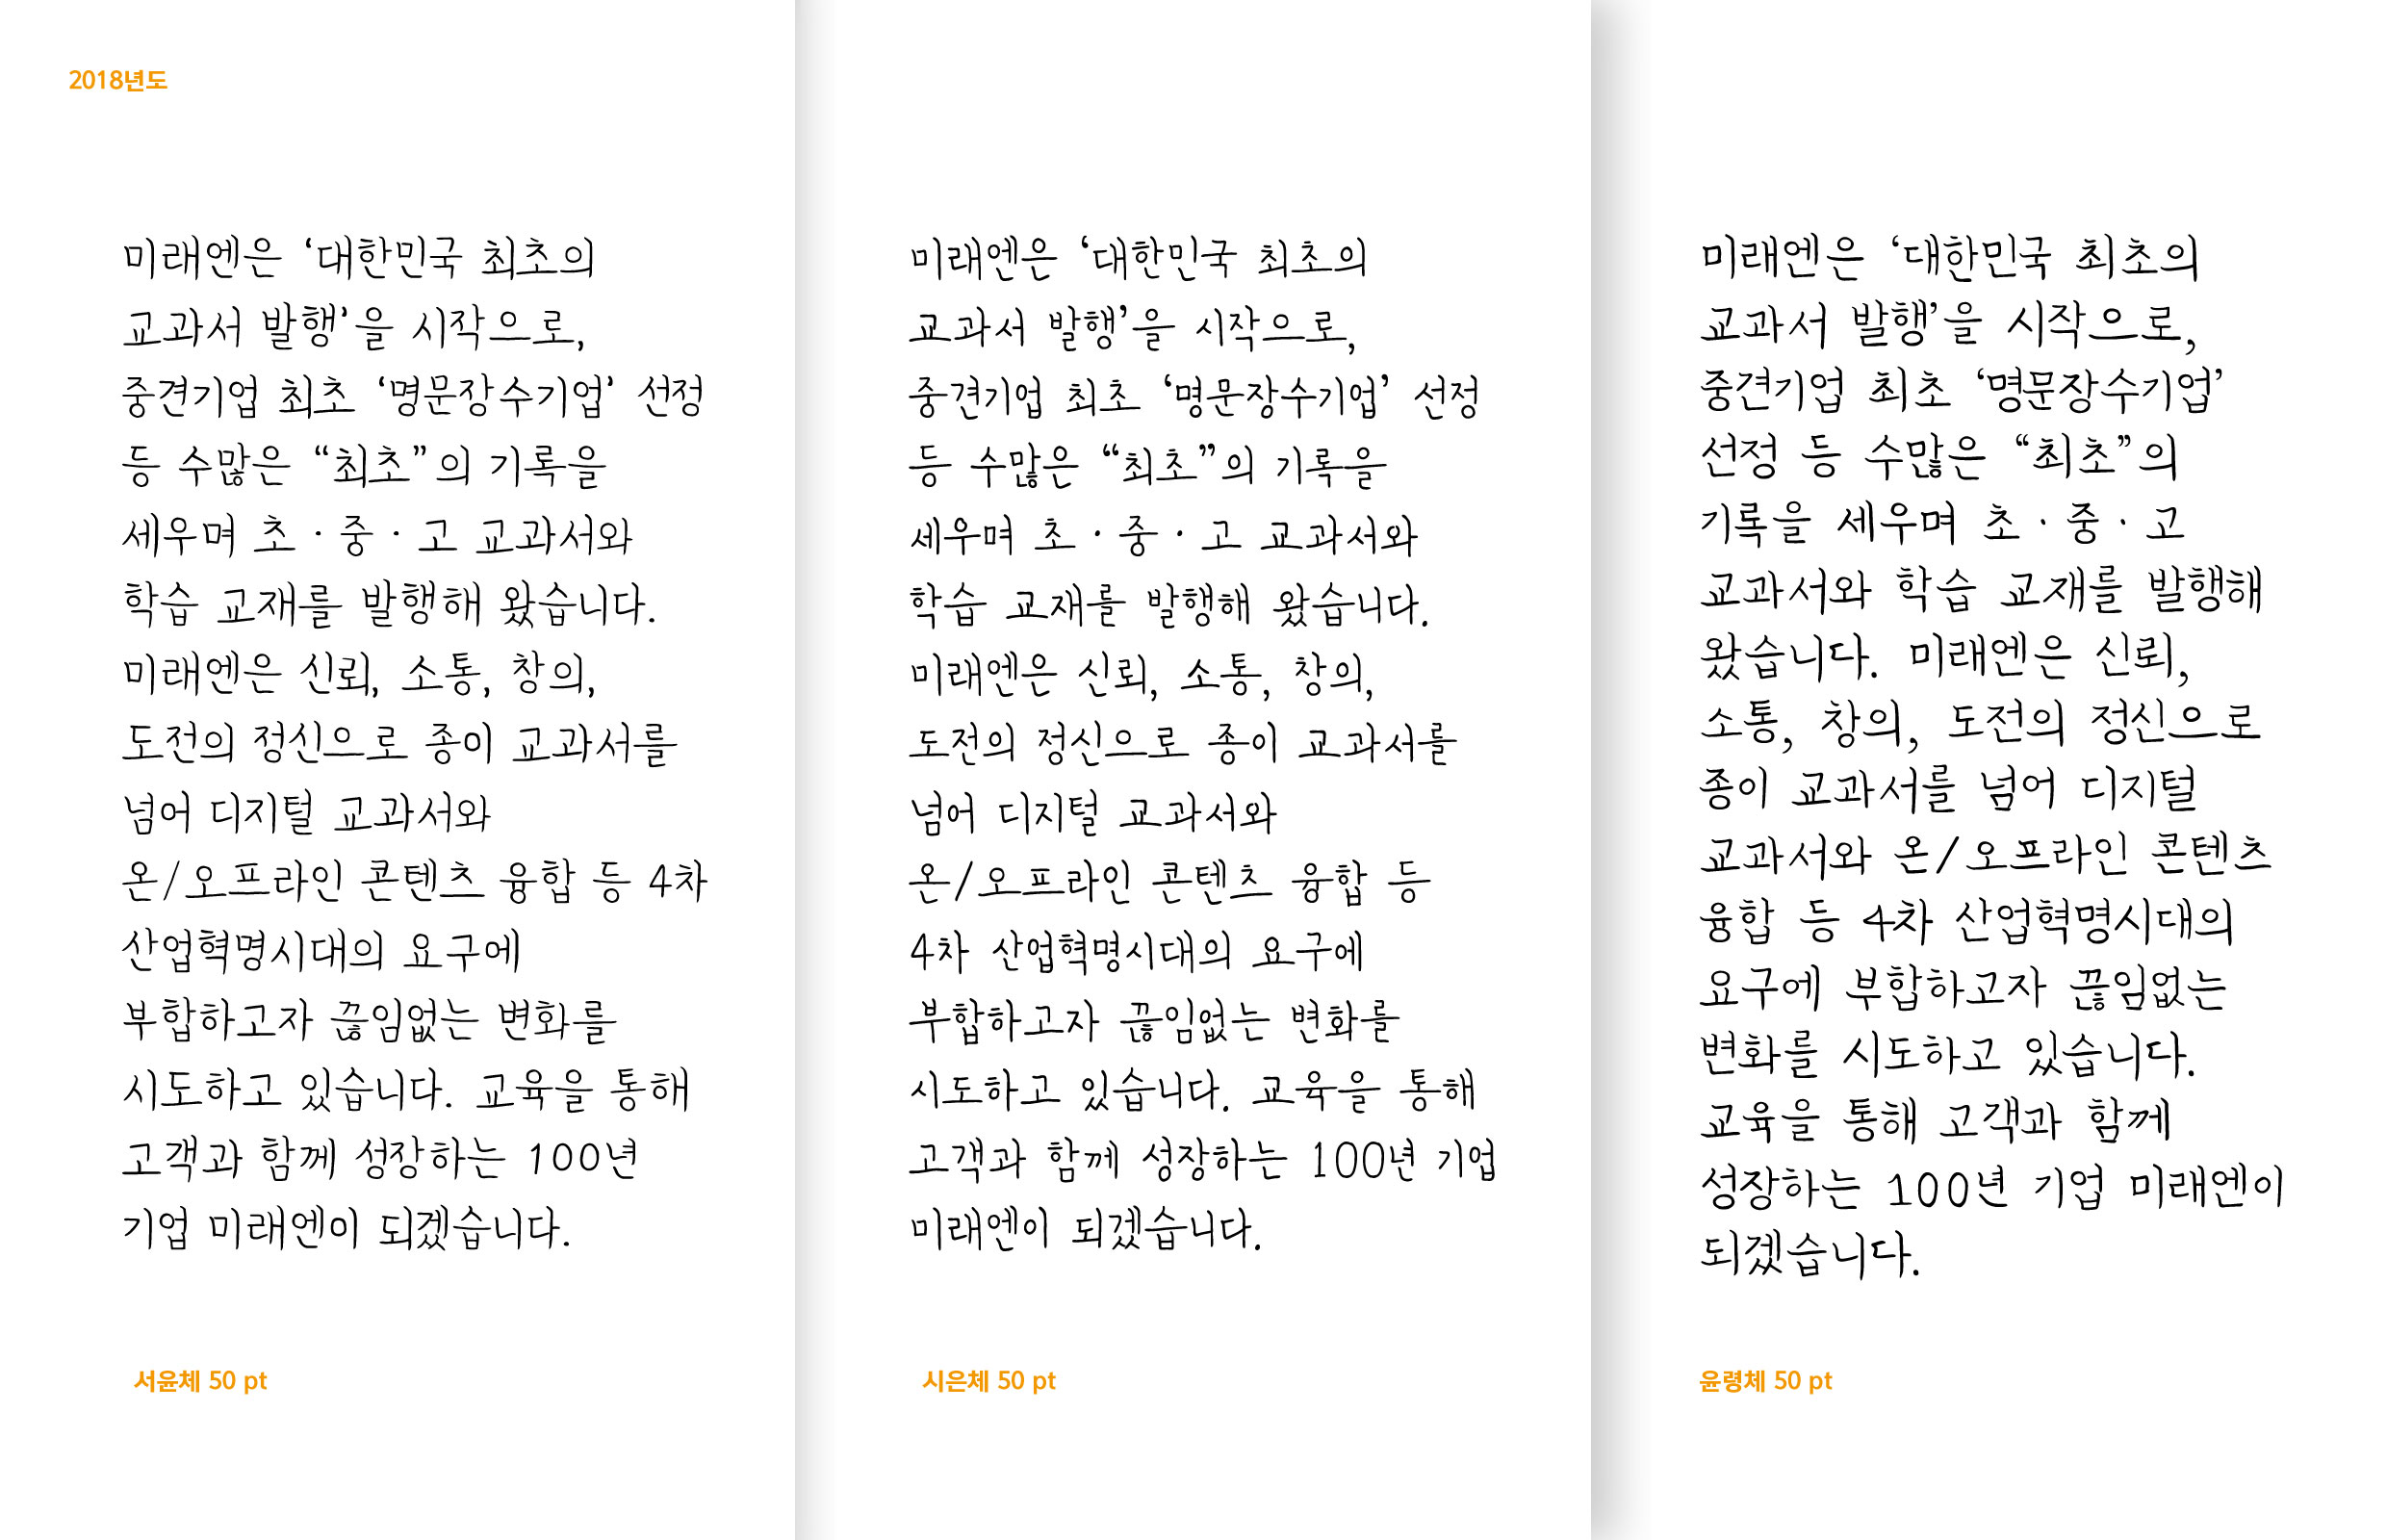 2018년도
미래엔은 ‘대한민국 최초의
교과서 발행’을 시작으로,
중견기업 최초 ‘명문장수기업’ 선정
등 수많은 “최초”의 기록을
세우며 초 · 중 · 고 교과서와
학습 교재를 발행해 왔습니다.
미래엔은 신뢰, 소통, 창의,
도전의 정신으로 종이 교과서를
넘어 디지털 교과서와
온/오프라인 콘텐츠 융합 등 4차
산업혁명시대의 요구에
부합하고자 끊임없는 변화를
시도하고 있습니다. 교육을 통해
고객과 함께 성장하는 100년
기업 미래엔이 되겠습니다.
서윤체 50 pt
미래엔은 ‘대한민국 최초의
교과서 발행’을 시작으로,
중견기업 최초 ‘명문장수기업’ 선정
등 수많은 “최초”의 기록을
세우며 초 · 중 · 고 교과서와
학습 교재를 발행해 왔습니다.
미래엔은 신뢰, 소통, 창의,
도전의 정신으로 종이 교과서를
넘어 디지털 교과서와
온/오프라인 콘텐츠 융합 등
4차 산업혁명시대의 요구에
부합하고자 끊임없는 변화를
시도하고 있습니다. 교육을 통해
고객과 함께 성장하는 100년 기업
미래엔이 되겠습니다.
시은체 50 pt
미래엔은 ‘대한민국 최초의
교과서 발행’을 시작으로,
중견기업 최초 ‘명문장수기업’
선정 등 수많은 “최초”의
기록을 세우며 초 · 중 · 고
교과서와 학습 교재를 발행해
왔습니다. 미래엔은 신뢰,
소통, 창의, 도전의 정신으로
종이 교과서를 넘어 디지털
교과서와 온/오프라인 콘텐츠
융합 등 4차 산업혁명시대의
요구에 부합하고자 끊임없는
변화를 시도하고 있습니다.
교육을 통해 고객과 함께
성장하는 100년 기업 미래엔이
되겠습니다.
윤령체 50 pt